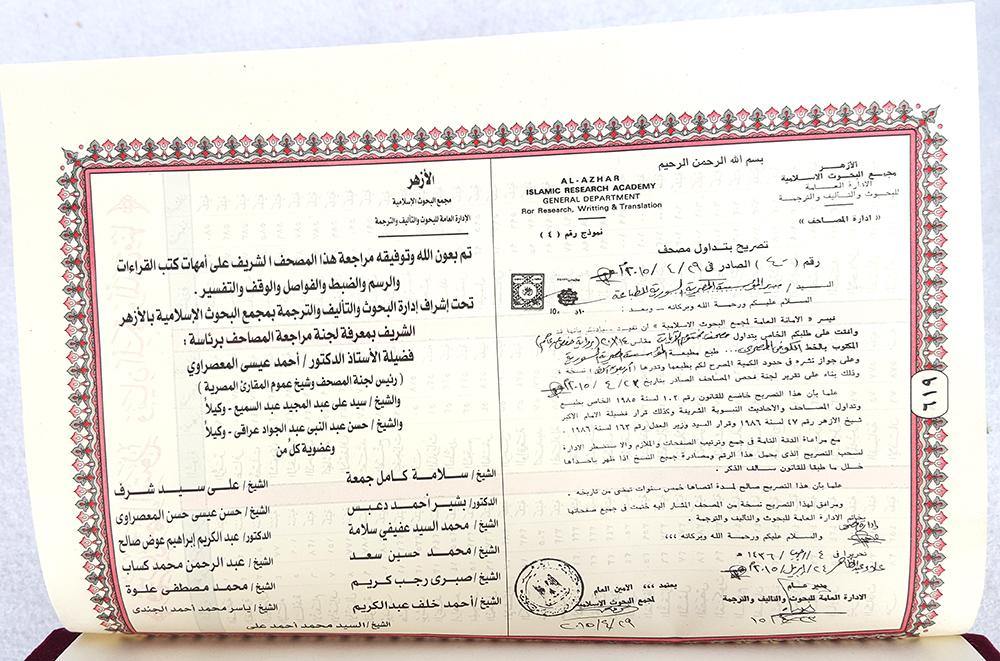 الأزهر
مجمع البحوث الاسلامية
الادارة العامة
للبحوث والتأليف والترجمة
« ادارة المصاحف »
بسم الله الرحمن الرحيم
AL-AZHAR
ISLAMIC RESEARCH ACADEMY
GENERAL DEPARTMENT
Ror Research, Writting & Translation
نموذج رقم ( ٤ )
تصريح بتداول مصحف
رقم ( ) الصادر فى ٢٩ / ٤ / ٢٠١٥
السيد /
السلام عليكم ورحمة الله وبركاته - وبعد :
فيسر « الأمانة العامة لمجمع البحوث الاسلامية » ان تفيد بأنها قد
وافقت على طلبكم الخاص بتداول مقاس
المكتوب بالخط طبع مطبعة
وعلى جواز نشره فى حدود الكمية المصرح لكم بطبعها وقدرها نسخة ،
وذلك بناء على تقرير لجنة فحص المصاحف الصادر بتاريخ ٢٣ / ٤ / ٢٠١٥
علما بأن هذا التصريح خاضع للقانون رقم ١٠٢ لسنة ١٩٨٥ الخاص بطبع
وتداول المصاحف والأحاديث النبوية الشريفة وكذلك قرار فضيلة الامام الأكبر
شيخ الأزهر رقم ٤٧ لسنة ١٩٨٦ وقرار السيد وزير العدل رقم ١٦٣ لسنة ١٩٨٦ .
مع مراعاة الدقة التامة فى جمع وترتيب الصفحات والملازم والا ستضطر الادارة
لسحب التصريح الذى يحمل هذا الرقم ومصادرة جميع النسخ اذا ظهر باحداها
خلل ما طبقا للقانون سالف الذكر .
علما بأن هذا التصريح صالح لمدة أقصاها خمس سنوات تمضى من تاريخه .
ومرافق لهذا التصريح نسخة من المصحف المشار اليه ختمت فى جميع صفحاتها
بخاتم الادارة العامة للبحوث والتأليف والترجمة .
والسلام عليكم ورحمة الله وبركاته ،،،
تحريرا فى ١٤٣٦ هـ
٢٠١٥ م
مدير عام
الادارة العامة للبحوث والتأليف والترجمة
يعتمد ،،، الأمين العام
لمجمع البحوث الاسلامية
٢٠١٥/٤/٢٩
الأزهر
مجمع البحوث الإسلامية
الإدارة العامة للبحوث والتأليف والترجمة
تم بعون الله وتوفيقه مراجعة هذا المصحف الشريف على أمهات كتب القراءات
والرسم والضبط والفواصل والوقف والتفسير .
تحت إشراف إدارة البحوث والتأليف والترجمة بمجمع البحوث الإسلامية بالأزهر
الشريف بمعرفة لجنة مراجعة المصاحف برئاسة :
فضيلة الأستاذ الدكتور / أحمد عيسى المعصراوي
( رئيس لجنة المصحف وشيخ عموم المقارئ المصرية )
والشيخ / سيد على عبد المجيد عبد السميع - وكيلاً
والشيخ / حسن عبد النبى عبد الجواد عراقى - وكيلاً
وعضوية كل من
الشيخ / سلامة كامل جمعة الشيخ / على سيد شرف
الدكتور / بشير أحمد دعبس الشيخ / حسن عيسى حسن المعصراوى
الشيخ / محمد السيد عفيفى سلامة الدكتور / عبد الكريم إبراهيم عوض صالح
الشيخ / محمد حسين سعد الشيخ / عبد الرحمن محمد كساب
الشيخ / صبرى رجب كريم الشيخ / محمد مصطفى علوة
الشيخ / أحمد خلف عبد الكريم الشيخ / ياسر محمد أحمد الجندى
الشيخ / السيد محمد أحمد على
٦١٩